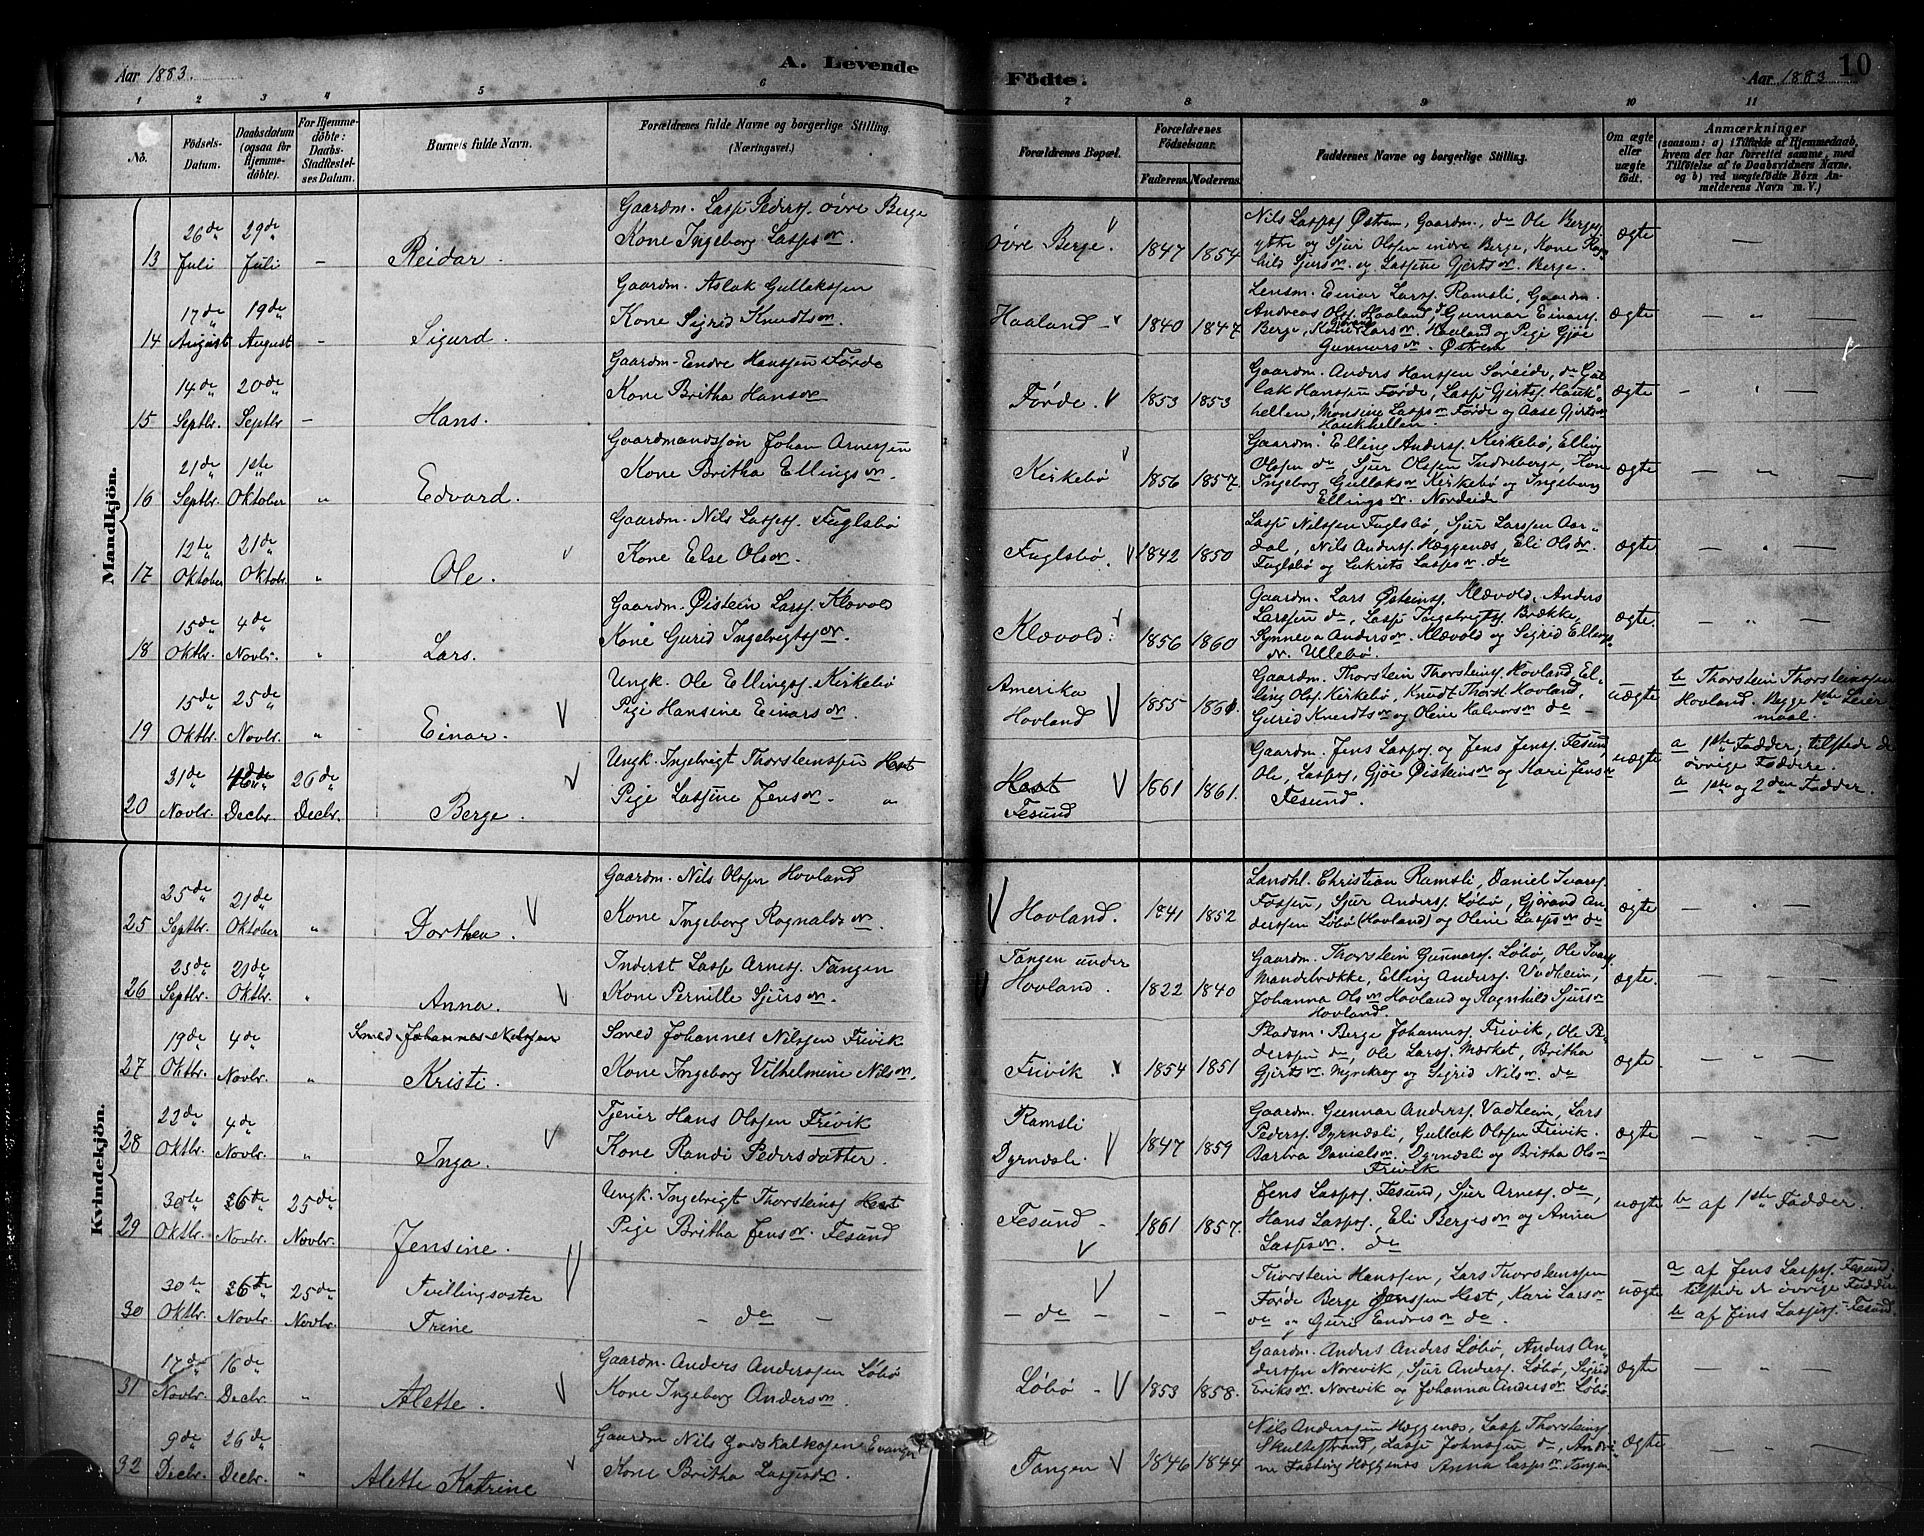 Aar 1883.
A. Levende
Födte.
Aar 1883
10
1 2 3 4 5 6 7 8 9 10 11
No.
Födsels-
Datum.
Daabsdatum
(ogsaa for
Hjemme-
döbte).
For Hjemme-
döbte:
Daabs-
Stadfæstel-
ses Datum.
Barnets fulde Navn.
Forældrenes fulde Navne og borgerlige Stilling.
(Næringsvei.)
Forældrenes Bopæl.
Forældrenes
Födselsaar.
Faderens. Moderens.
Faddernes Navne og borgerlige Stilling.
Om ægte
eller
uægte
født.
Anmærkninger
(saasom: a) i Tilfælde af Hjemmedaab,
hvem der har forrettet samme, med
Tilföielse af to Daabsvidners Navne,
og b) ved uægtefödte Börn An-
melderens Navn m. V.)
Mandkjön.
13
26de
Juli
29de
Juli
Reidar.
Gaardm. Lasse Pederss. övre Berge
Kone Ingeborg Lassesdr.
övre Berge.
1847 1854
Nils Lassess Østrem, Gaardm., de Ole Bergess
ytre og Sjur Olssen indre Berge, Kone Ragn-
hild Sjursdr. og Lassine Gjertsdr. Berge.
ægte
14
17de
August
19de
August
Sigurd.
Gaardm. Aslak Gullakssen
Kone Sigrid Knudtsdr.
Haaland
1840 1847
Lensm. Einar Larss. Ramsli, Gaardm.
Andreas Olss. Hovland, de Gunnar Einarss.
Berge, Kone Larsdr. Hovland og Pige Gjöe
Gunnarsdr. Østrem
ægte
15
14de
Septbr.
20de
Septbr
Hans.
Gaardm. Endre Hanssen Førde
Kone Britha Hansdr
Førde.
1853 1853
Gaardm. Anders Hanssen Søreide, de Gul-
lak Hanssen Førde, Lasse Gjertss. Hauk-
hellen, Monsine Lassesdr Førde og Aase Gjertsdr
Haukhellen.
ægte
16
21de
Septbr.
1ste
Oktober
Edvard.
Gaardmandssøn Johan Arnessen
Kone Britha Ellingsdr.
Kirkebø
1856 1857.
Gaardm. Elling Anderss. Kirkebø, Elling
Olssen de, Sjur Olssen Indreberge, Kone
Ingeborg Gullaksdr Kirkebø og Ingeborg
Ellingsdr. Nordeide
ægte
17
12te
Oktober
21de
Oktobr.
Ole.
Gaardm. Nils Lassess. Fuglsbø
Kone Else Olsdr.
Fuglsbø.
1842 1850
Lasse Nilssen Fuglsbø, Sjur Larssen Aar-
dal, Nils Anderss. Hæggenæs, Eli Olsdr.
Fuglsbø og Lukrets Lassesdr. de
ægte
18
15de
Oktbr.
4de
Novbr.
Lars.
Gaardm. Øistein Larss. Klævold
Kone Gurid Ingebrigtsdr.
Klævold.
1856 1860
Gaardm. Lars Østeinss. Klævold, Anders
Larssen de, Lasse Ingebrigtss. Brække,
Synneva Andersdr. Klævold og Sigrid Ellings-
dr. Ullebø.
ægte.
19
15de
Oktbr.
25de
Novbr.
Einar.
Ungk. Ole Ellingss. Kirkebø
Pige Hansine Einarsdr.
Amerika
Hovland
1855
Gaardm. Thorstein Thorsteinss. Hovland, El-
ling Olss. Kirkebø, Knudt Thorst. Hovland,
Gurid Knudtsdr og Oline Halvorsdr de
uægte
b Thorstein Thorsteinssen
Hovland. Begge 1ste Leier
maal.
20
31de
Novbr.
Decbr.
26de
Decbr.
Berge.
Ungk. Ingebrigt Thorsteinssen Hest
Pige Lassine Jensdr. "
Hest
Tesund
1661 1861.
Gaardm. Jens Lassess. og Jens Jenss. Tesund,
Ole, Lassess., Gjöe Østeinsdr og Kari Jensdr
Tesund.
uægte
a 1ste Fadder; tilstede de
övrige Faddere.
a 1ste og 2den Fadder.
Kvindekjön.
25
25de
Septbr.
21de
Oktober
Dorthea.
Gaardm. Nils Olssen Hovland
Kone Ingeborg Ragnaldsdr.
Hovland.
1841 1852
Landhl. Christian Ramsli, Daniel Ivarss.
Fossen, Sjur Anderss. Løbø, Gjörand An-
derssen Løbø (Hovland) og Oline Lassesdr de
ægte
26
23de
Septbr.
21de
Oktbr.
Anna.
Inderst Lasse Arness. Tangen
Kone Pernille Sjursdr.
Tangen under
Hovland.
1822 1840
Gaardm. Thorstein Gunnarss. Løbø, Ole Ivarss.
Mandebrække, Elling Anderss. Vadheim,
Johanna Olsdr Hovland og Ragnhild Sjursdr
Hovland.
ægte.
27
19de
Oktbr.
4de
Novbr.
Smed Johannes Nilssen
Kristi.
Smed Johannes Nilssen Frivik
Kone Ingeborg Vilhelmine Nilsdr.
Frivik
1854 1851
Pladsm. Berge Johanness. Frivik, Ole Pe-
derssen de, Ole Larss. Mærket, Britha
Gjertsdr. Myrekrog og Sigrid Nilsdr. de
ægte.
28
22de
Oktbr.
4de
Novbr.
Inga.
Tjener Hans Olssen Frivik
Kone Randi Pedersdatter.
Ramsli
Dyrndsli
1847 1859
Gaardm. Gunnar Anderss. Vadheim, Lars
Pederss. Dyrndsli, Gullak Olssen Frivik.
Barbra Danielsdr. Dyrndsli og Britha Ols-
Frivik
ægte
29
30te
Oktbr.
26de
Novbr.
25de
Novbr.
Jensine.
Ungk. Ingebrigt Thorsteinss. Hest
Pige Britha Jensdr. Tesund
Tesund
1861 1857.
Jens Lassess. Tesund, Sjur Arness. de,
Hans Lassess., Eli Bergesdr og Anna
Lassesdr. de
uægte
b af 1ste Fadder.
30
30te
Oktbr.
26de
Novbr.
25de
Novbr.
Tvillingsøster
Trine
- de -
- de -
Thorstein Hanssen, Lars Thorsteinssen
Førde Berge Jenssen Hest, Kari Larsdr
de og Guri Endresdr de.
uægte
a af Jens Lassess. Tesund.
tilstede de övrige Faddere
b af Jens Lassess. Tesund.
31
17de
Novbr.
16de
Decbr.
Alette.
Gaardm. Anders Anderssen Løbø
Kone Ingeborg Andersdr.
Løbø
1853 1858.
Gaardm. Anders Anders Løbø, Anders An-
derssen Norevik, Sjur Anderss. Løbø, Sigrid
Eriksdr. Norevik og Johanna Andersdr. Løbø
ægte
32
9de
Decbr.
26de
Decbr.
Alette Katrine
Gaardm Nils Godskalkssen Evanger
Kone Britha Lassesdr.
Tangen
1846 1844
Nils Anderssen Hæggenæs, Lasse Thorsteinss
Skulhestrand, Lasse Johnssen de,
Hæggenæs Anna Lassesdr. Tangen
ægte